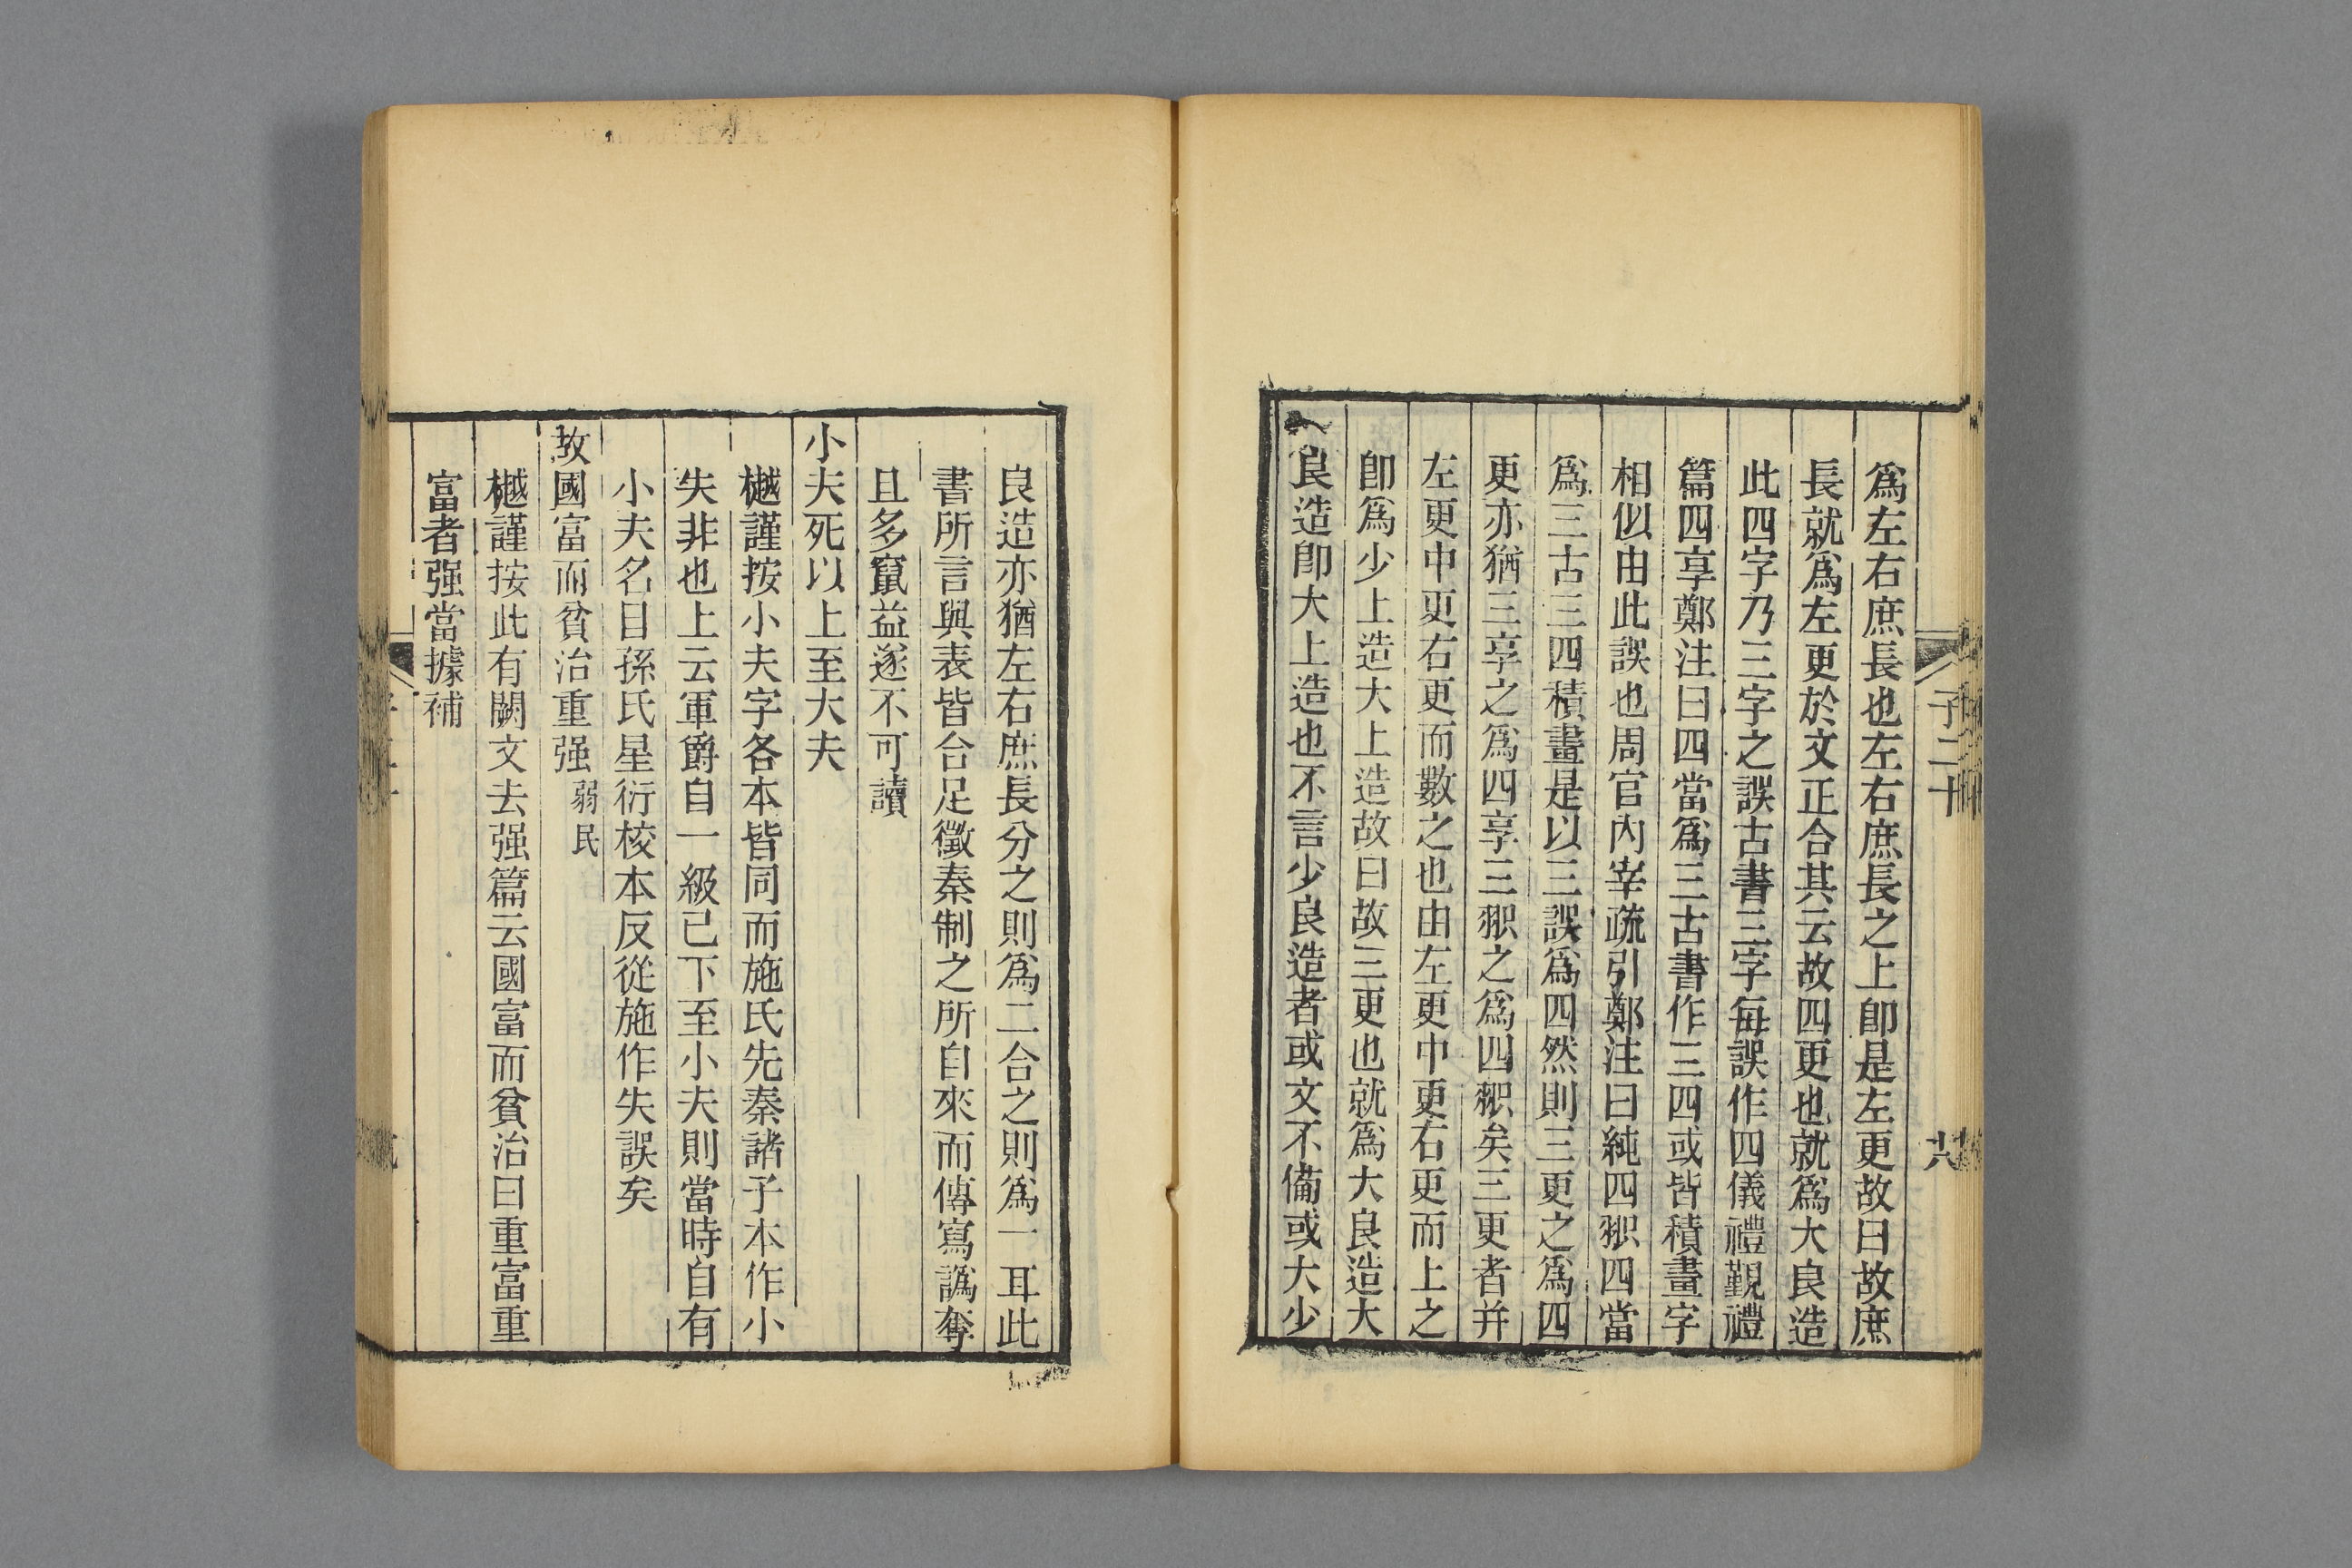 子二十
爲左右庶長也左右庶長之上卽是左更故曰故庶
長就爲左更於文正合其云故四更也就爲大良造
此四字乃三字之誤古書三字每誤作四儀禮覲禮
篇四享鄭注曰四當爲三古書作三四或皆積畫字
相似由此誤也周官內宰疏引鄭注曰純四䄷四當
爲三古三四積畫是以三誤爲四然則三更之爲四
更亦猶三享之爲四享三䄷之爲四䄷矣三更者并
左更中更右更而數之也由左更中更右更而上之
卽爲少上造大上造故曰故三更也就爲大良造大
良造卽大上造也不言少良造者或文不備或大少
良造亦猶左右庶長分之則爲二合之則爲一耳此
書所言與表皆合足徵秦制之所自來而傳寫譌奪
且多竄益遂不可讀
小夫死以上至大夫
樾謹按小夫字各本皆同而施氏先秦諸子本作小
失非也上云軍爵自一級已下至小夫則當時自有
小夫名目孫氏星衍校本反從施作失誤矣
故國富而貧治重强 弱民
樾謹按此有闕文去强篇云國富而貧治曰重富重
富者强當據補